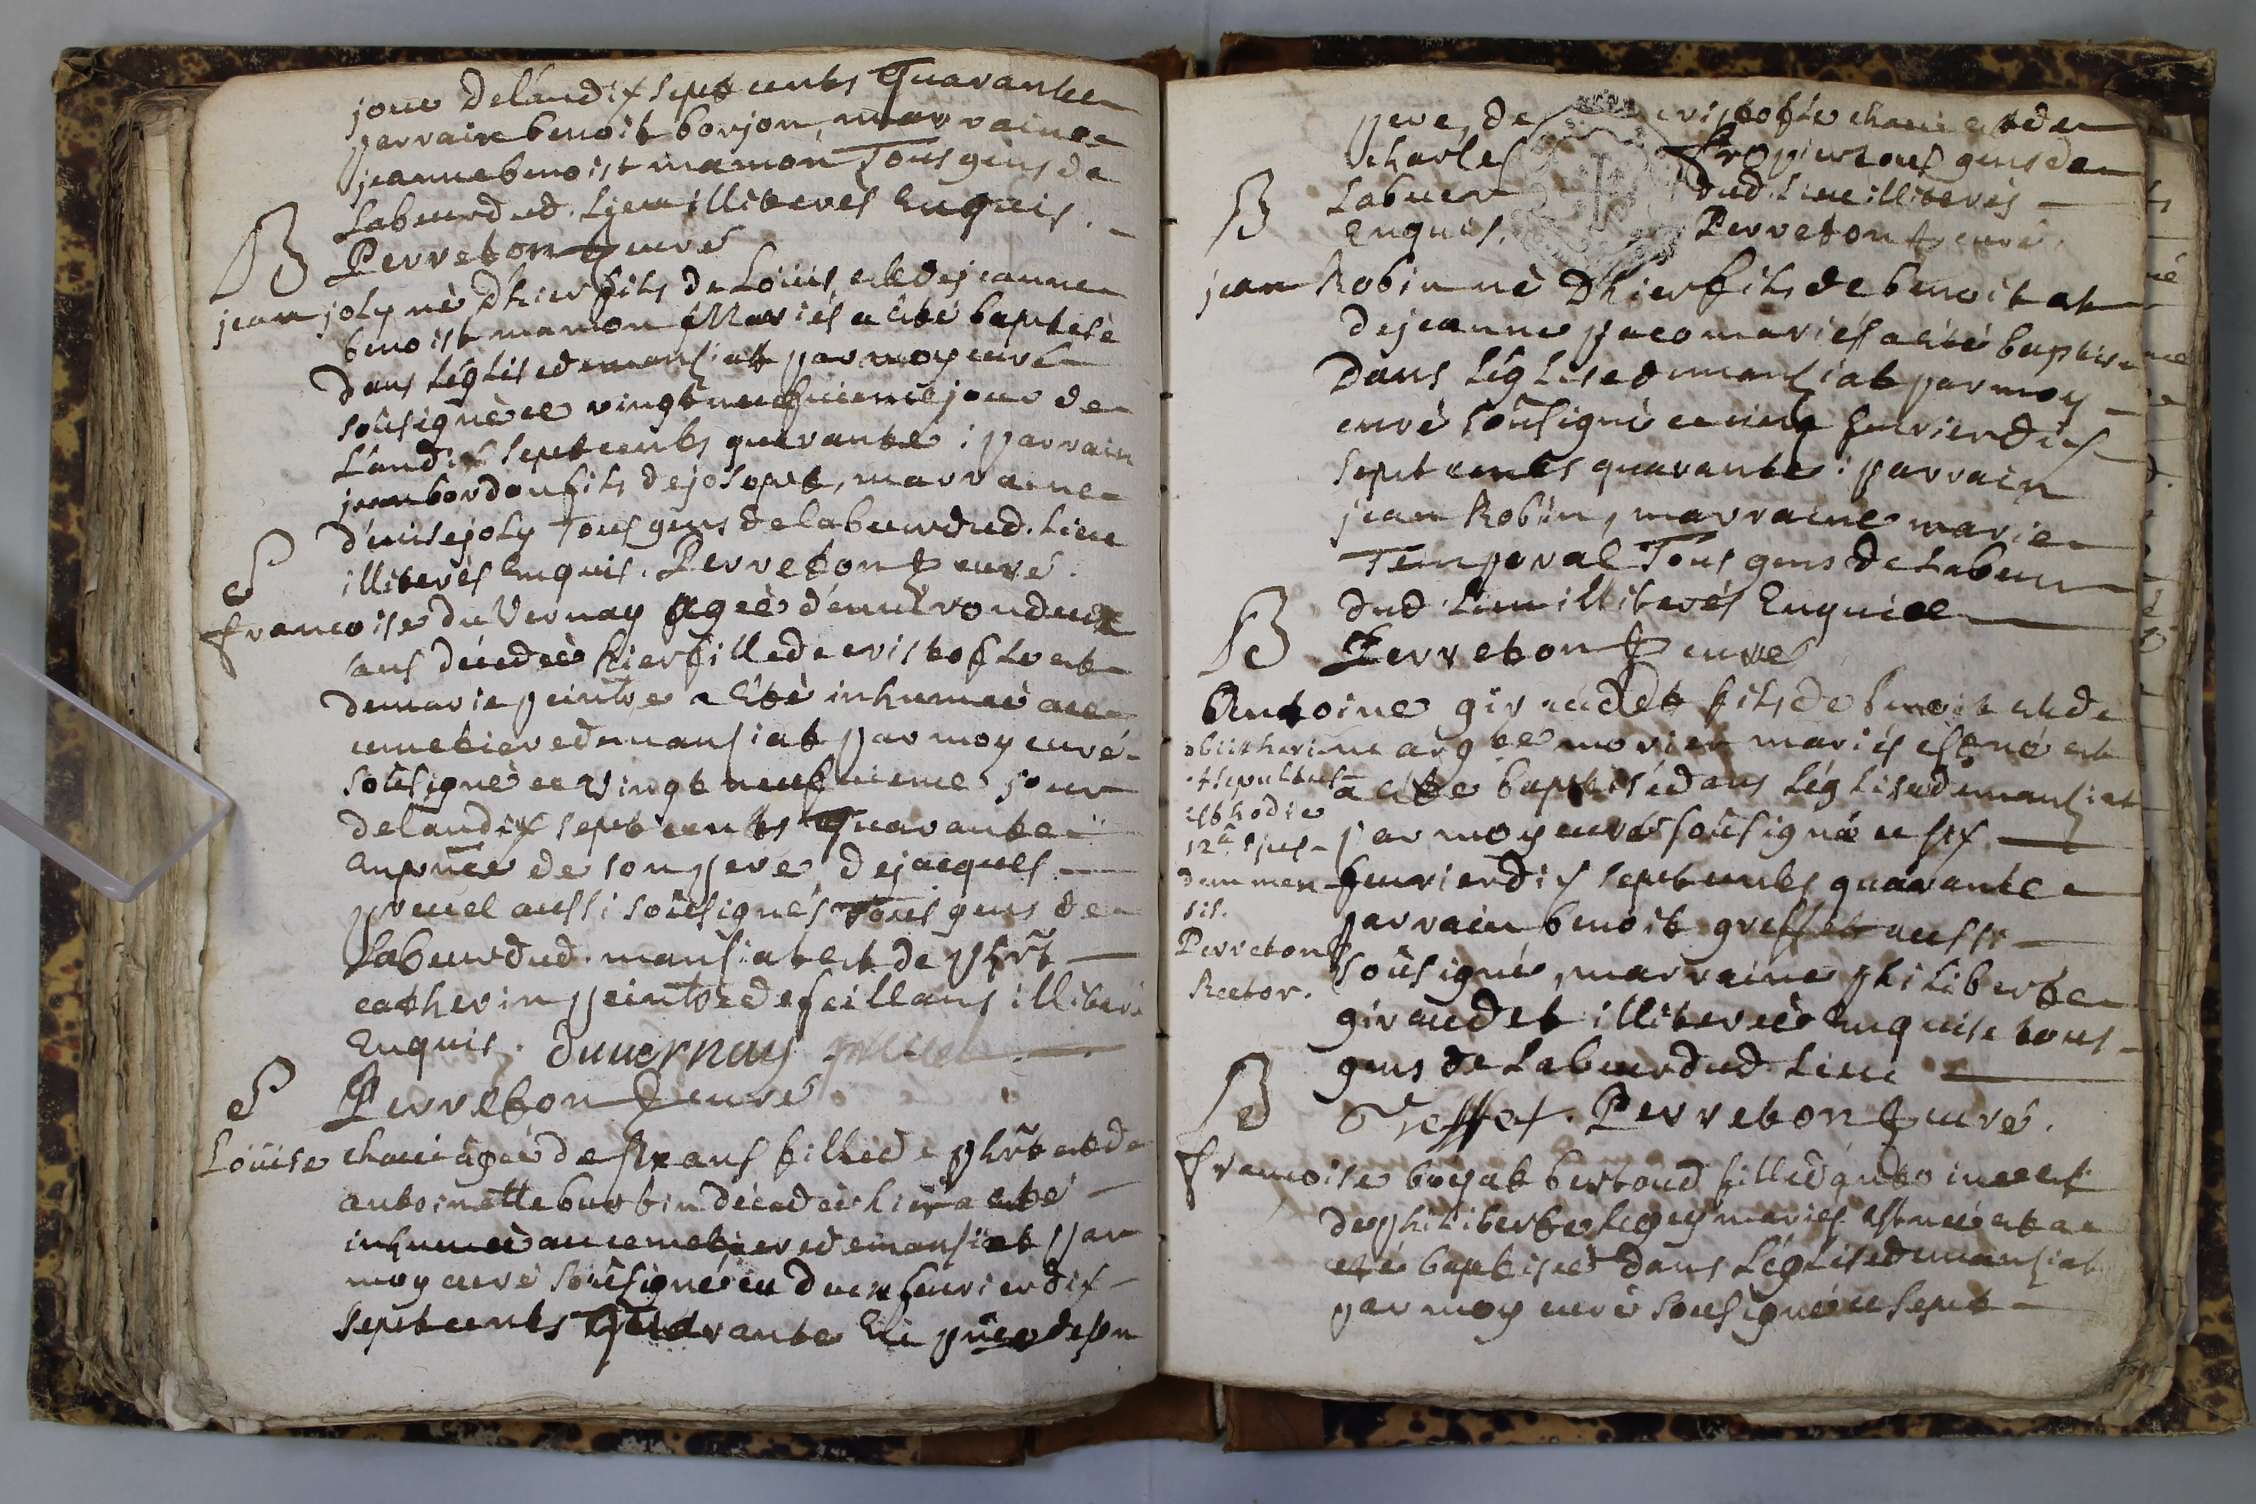 jour de l'an dix sept cents Quarante
parrain benoit borjon, marraine
jeanne benoist mamon Tous gens de
Labeur dud. Lieu illiterés Enquis.
Perreton curé
B
jean joly né d'hier fils de Loüis et de jeanne
benoist mamon Mariés a êté baptisé
dans L'église de mansiat par moy curé
soûsigné ce vingt neufvieme jour de
L'an dix sept cents quarante : parrain
jean bordon fils de joseph, marraine
d'enise joly Tous gens de labeur dud. Lieu
illiterés Enquis. Perreton curé.
S
francoise du Vernay agée d'environ deux
ans décedeé hier fille de cristofle et
de marie peintre a êté inhumeé au
cemetiere de mansiat par moy curé
soûsigné ce vingt neufvieme jour
de l'an dix sept cents Quarante
En pñce de son pere de jacques
pruel aussi soûsignés Tous gens de
Labeur dud. mansiat et de phr̃t
catherin peintre de feillans illiteré
Enquis. duuernay pruel
Perreton curé
S
Loüise chanu âgeé de six ans fille de phr̃t et de
antoinette burtin décedeé hier a eté
inhumeé au cemetiere de mansiat par
moy curé soûsigné ce deux feurier dix
sept cents Quarante En pñce de son
pere, de cristofle chanu et de
charles tous gens de
Labeur dud. Lieu illiterés
Enquis. Perreton curé.
B
jean Robin né d'hier fils de benoit et
de jeanne paco mariés a êté baptisé
dans L'église de mansiat par moy
curé soûsigné ce cinq feurier dix
sept cents quarante : parrain
jean Robin, marraine marie
Temporal Tous gens de Labeur
dud. Lieu illiterés Enquis
Perreton curé
B
Antoine giraudet fils de benoit et de
marg te morier mariés est né et
a êté baptisé dans L'église de mansiat
par moy curé soûsigné ce six
feurier dix sept cents quarante
parrain benoit greffet aussi
soûsigné, marraine philiberte
giraudet illitereé Enquise tous
gens de Labeur dud. Lieu
Greffet. Perreton curé.
obiit heri
et sepultus
est hodie
12ᵃ ejus
dem men
sis.
Perreton
Rector.
B
francoise boyat bertoud fille d'antoine et
de philiberte Legey mariés est neé et a
eté baptiseé dans L'église de mansiat
par moy curé soûsigné ce sept